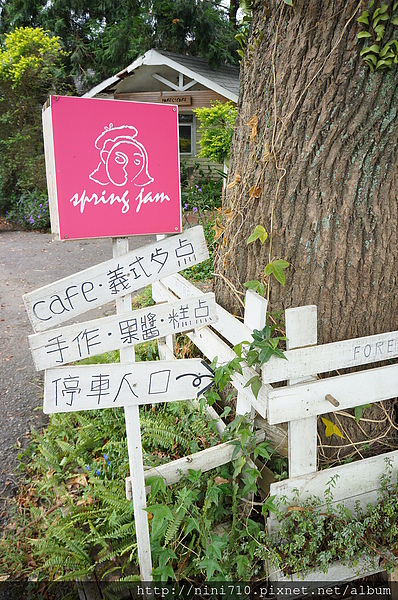 spring jam
cafe・義式歺点
手作・果醬・糕点
停車入口
FORE
http://nini710.pixnet.net/album